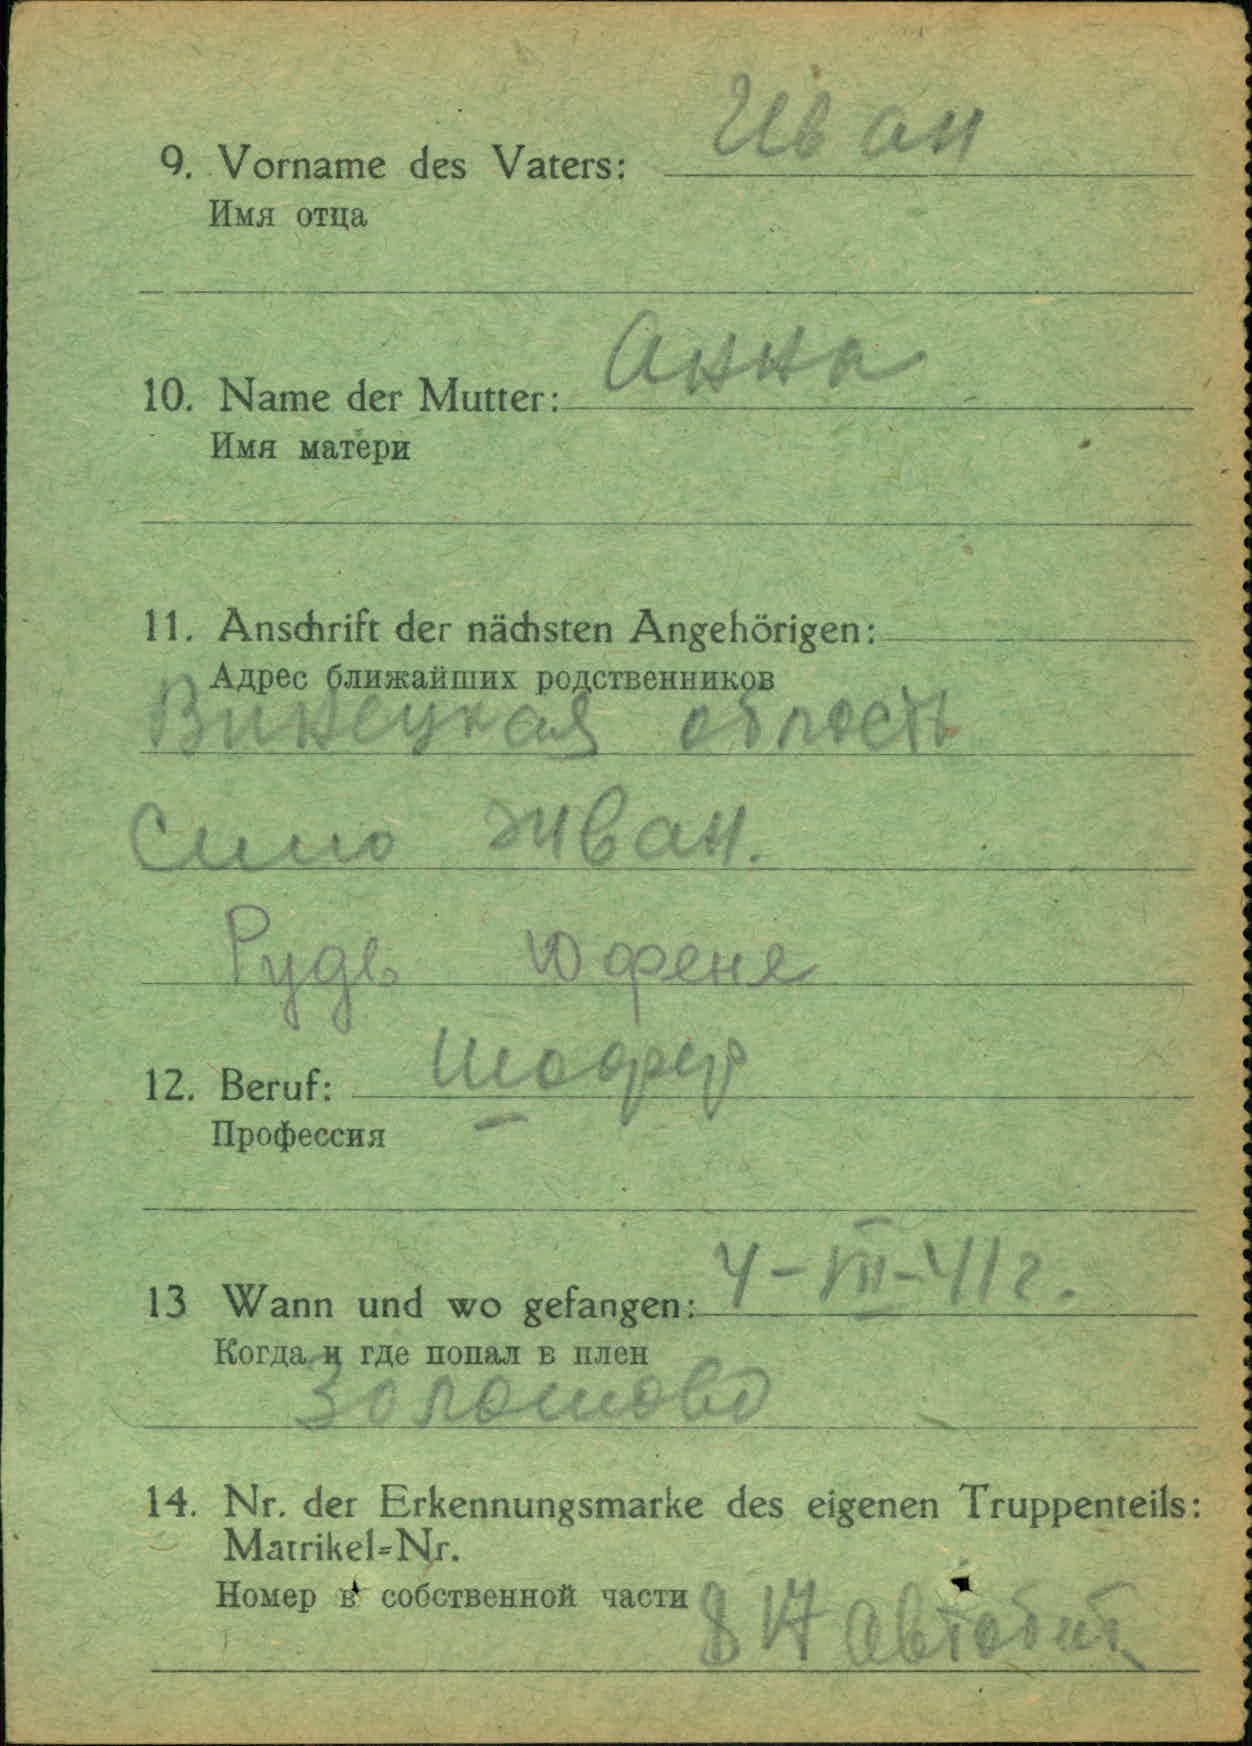 Иван
9. Vorname des Vaters:
Имя отца
Анна
10. Name der Mutter:
Имя матери
11. Anschrift der nächsten Angehörigen:
Адрес ближайших родственников
Винецкая область
Сило Жван.
Рудь Юфеня
12. Beruf: Шофер
Профессия
13 Wann und wo gefangen: 4-VIII-41г.
Когда и где попал в плен
14. Nr. der Erkennungsmarke des eigenen Truppenteils:
Matrikel-Nr.
Номер в собственной части